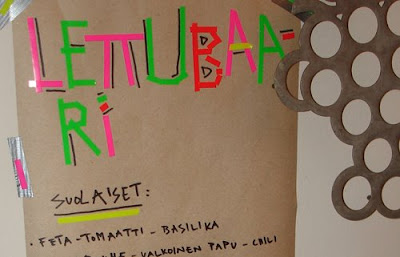 LETTUBAA-
RI
SUOLAISET:
· FETA-TOMAATTI - BASILIKA
VALKOINEN PAPU - CHILI